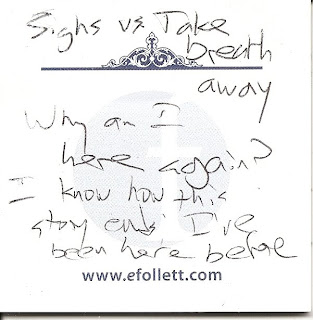 Sighs vs. Take
breath
away
Why am I
here again?
I know how this
story ends' I've
been here before
www.efollett.com